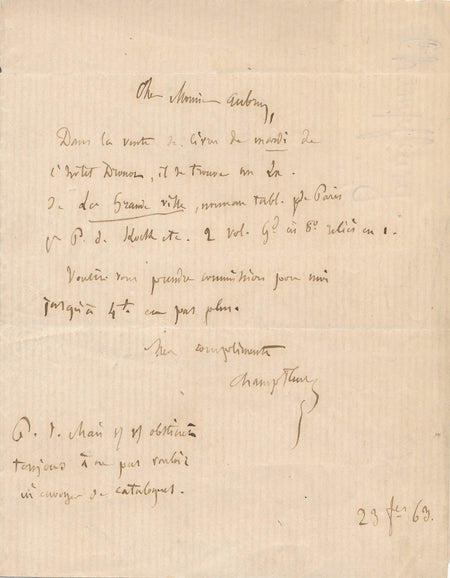 Cher Monsieur Aubry,
Dans la vente de livres de mardi de
l'hôtel Drouot, il se trouve un Ex.
de La Grande ville, nouveau tabl. de Paris
par P. de Kock etc. 2 vol. Gd in 8o reliés en 1.
Voulez vous prendre commission pour moi
jusqu'à 4 f. pas plus.
Mes compliments
Champfleury
toujours à ne pas vouloir
m'envoyer de catalogues.
23 fer 63.